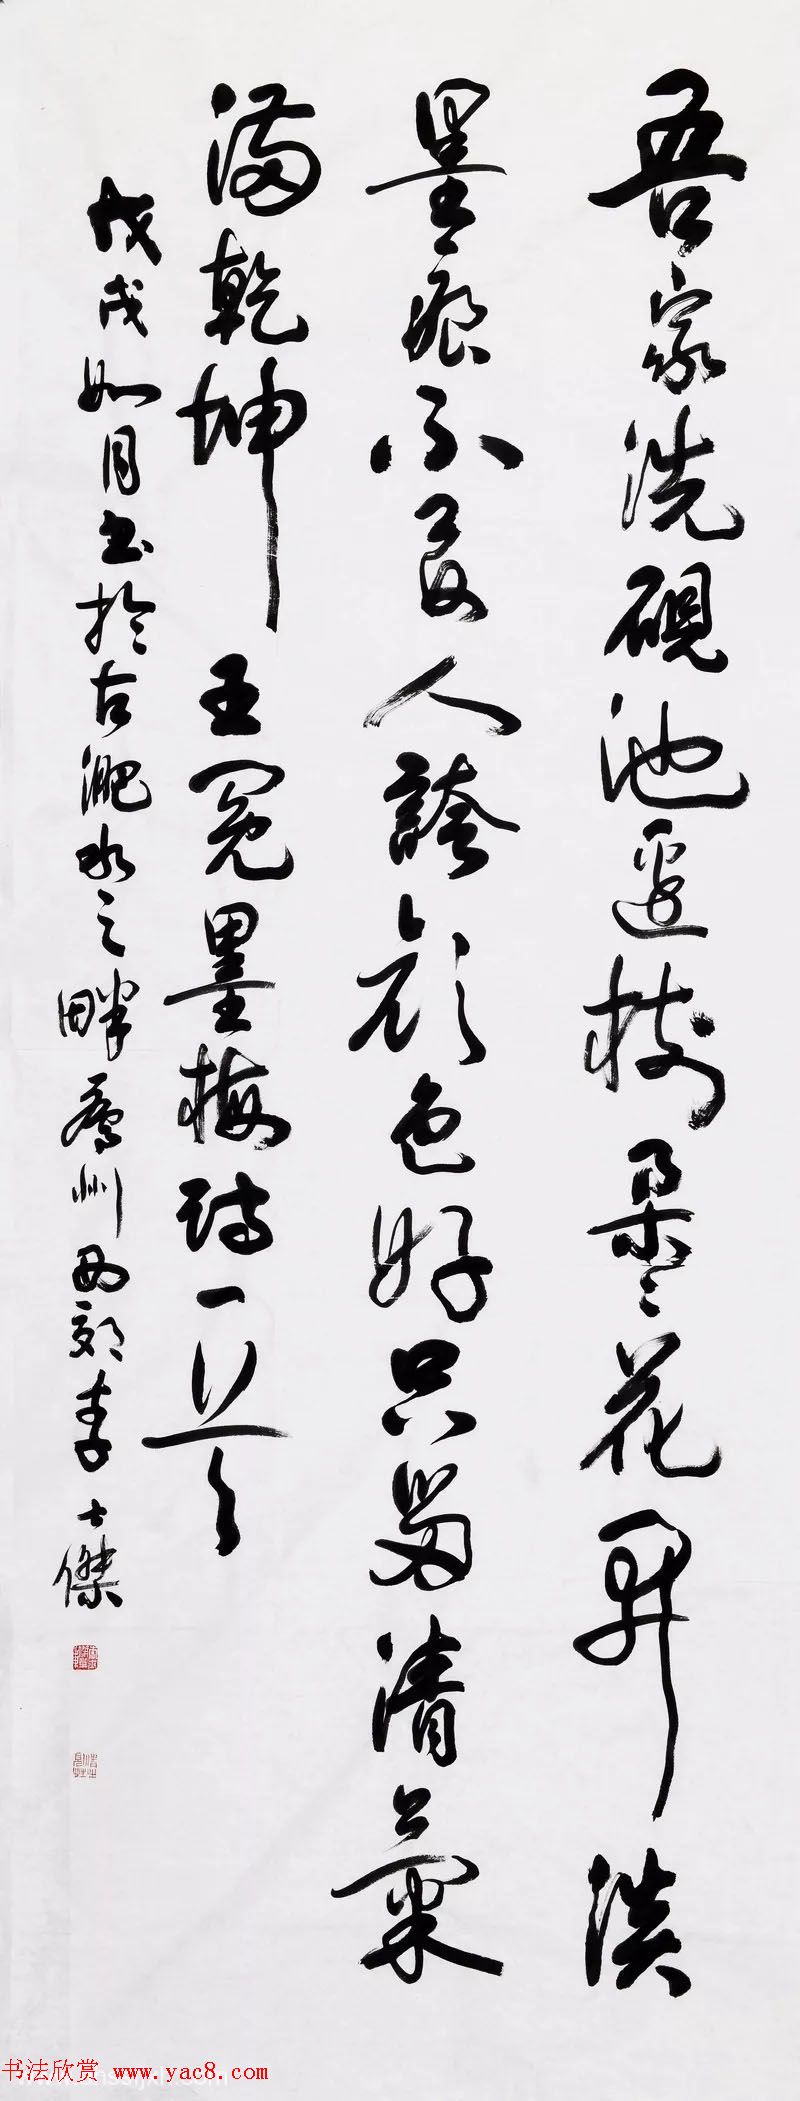 吾家洗硯池邊樹朵々花開淡
墨痕不要人誇顏色好只留清氣
滿乾坤 王冕墨梅詩一首
戊戌如月書於古淝水之畔廬州西郊李士傑
书法欣赏 www.yac8.com